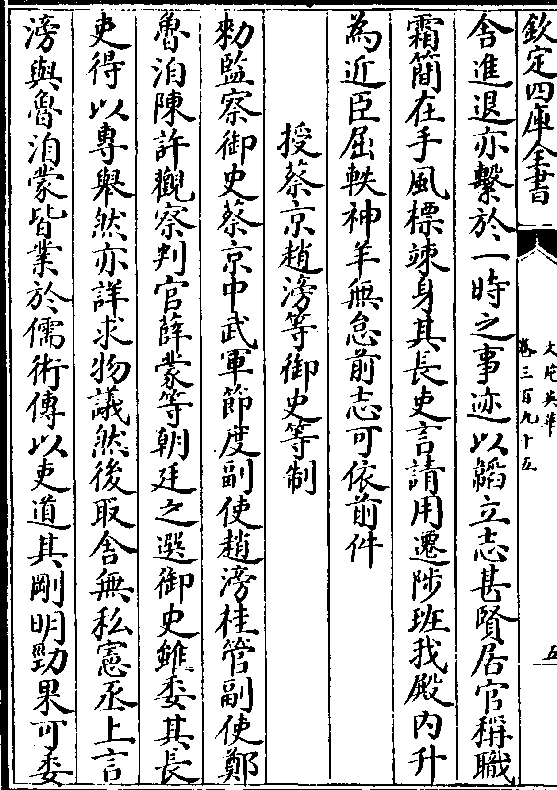 欽定四庫全書
文苑英華
卷三百九十五
五
舎進退亦繫於一時之事迹以韜立志甚賢居官稱職
霜簡在手風標竦身其長吏言請用遷陟班我殿内升
為近臣屈軼神羊無怠前志可依前件
授蔡京趙滂等御史等制
勅監察御史蔡京中武軍節度副使趙滂桂管副使鄭
魯洎陳許觀察判官薛蒙等朝廷之選御史雖委其長
吏得以專舉然亦詳求物議然後取舍無私憲丞上言
滂與魯洎蒙皆業於儒術傳以吏道其剛明勁果可委